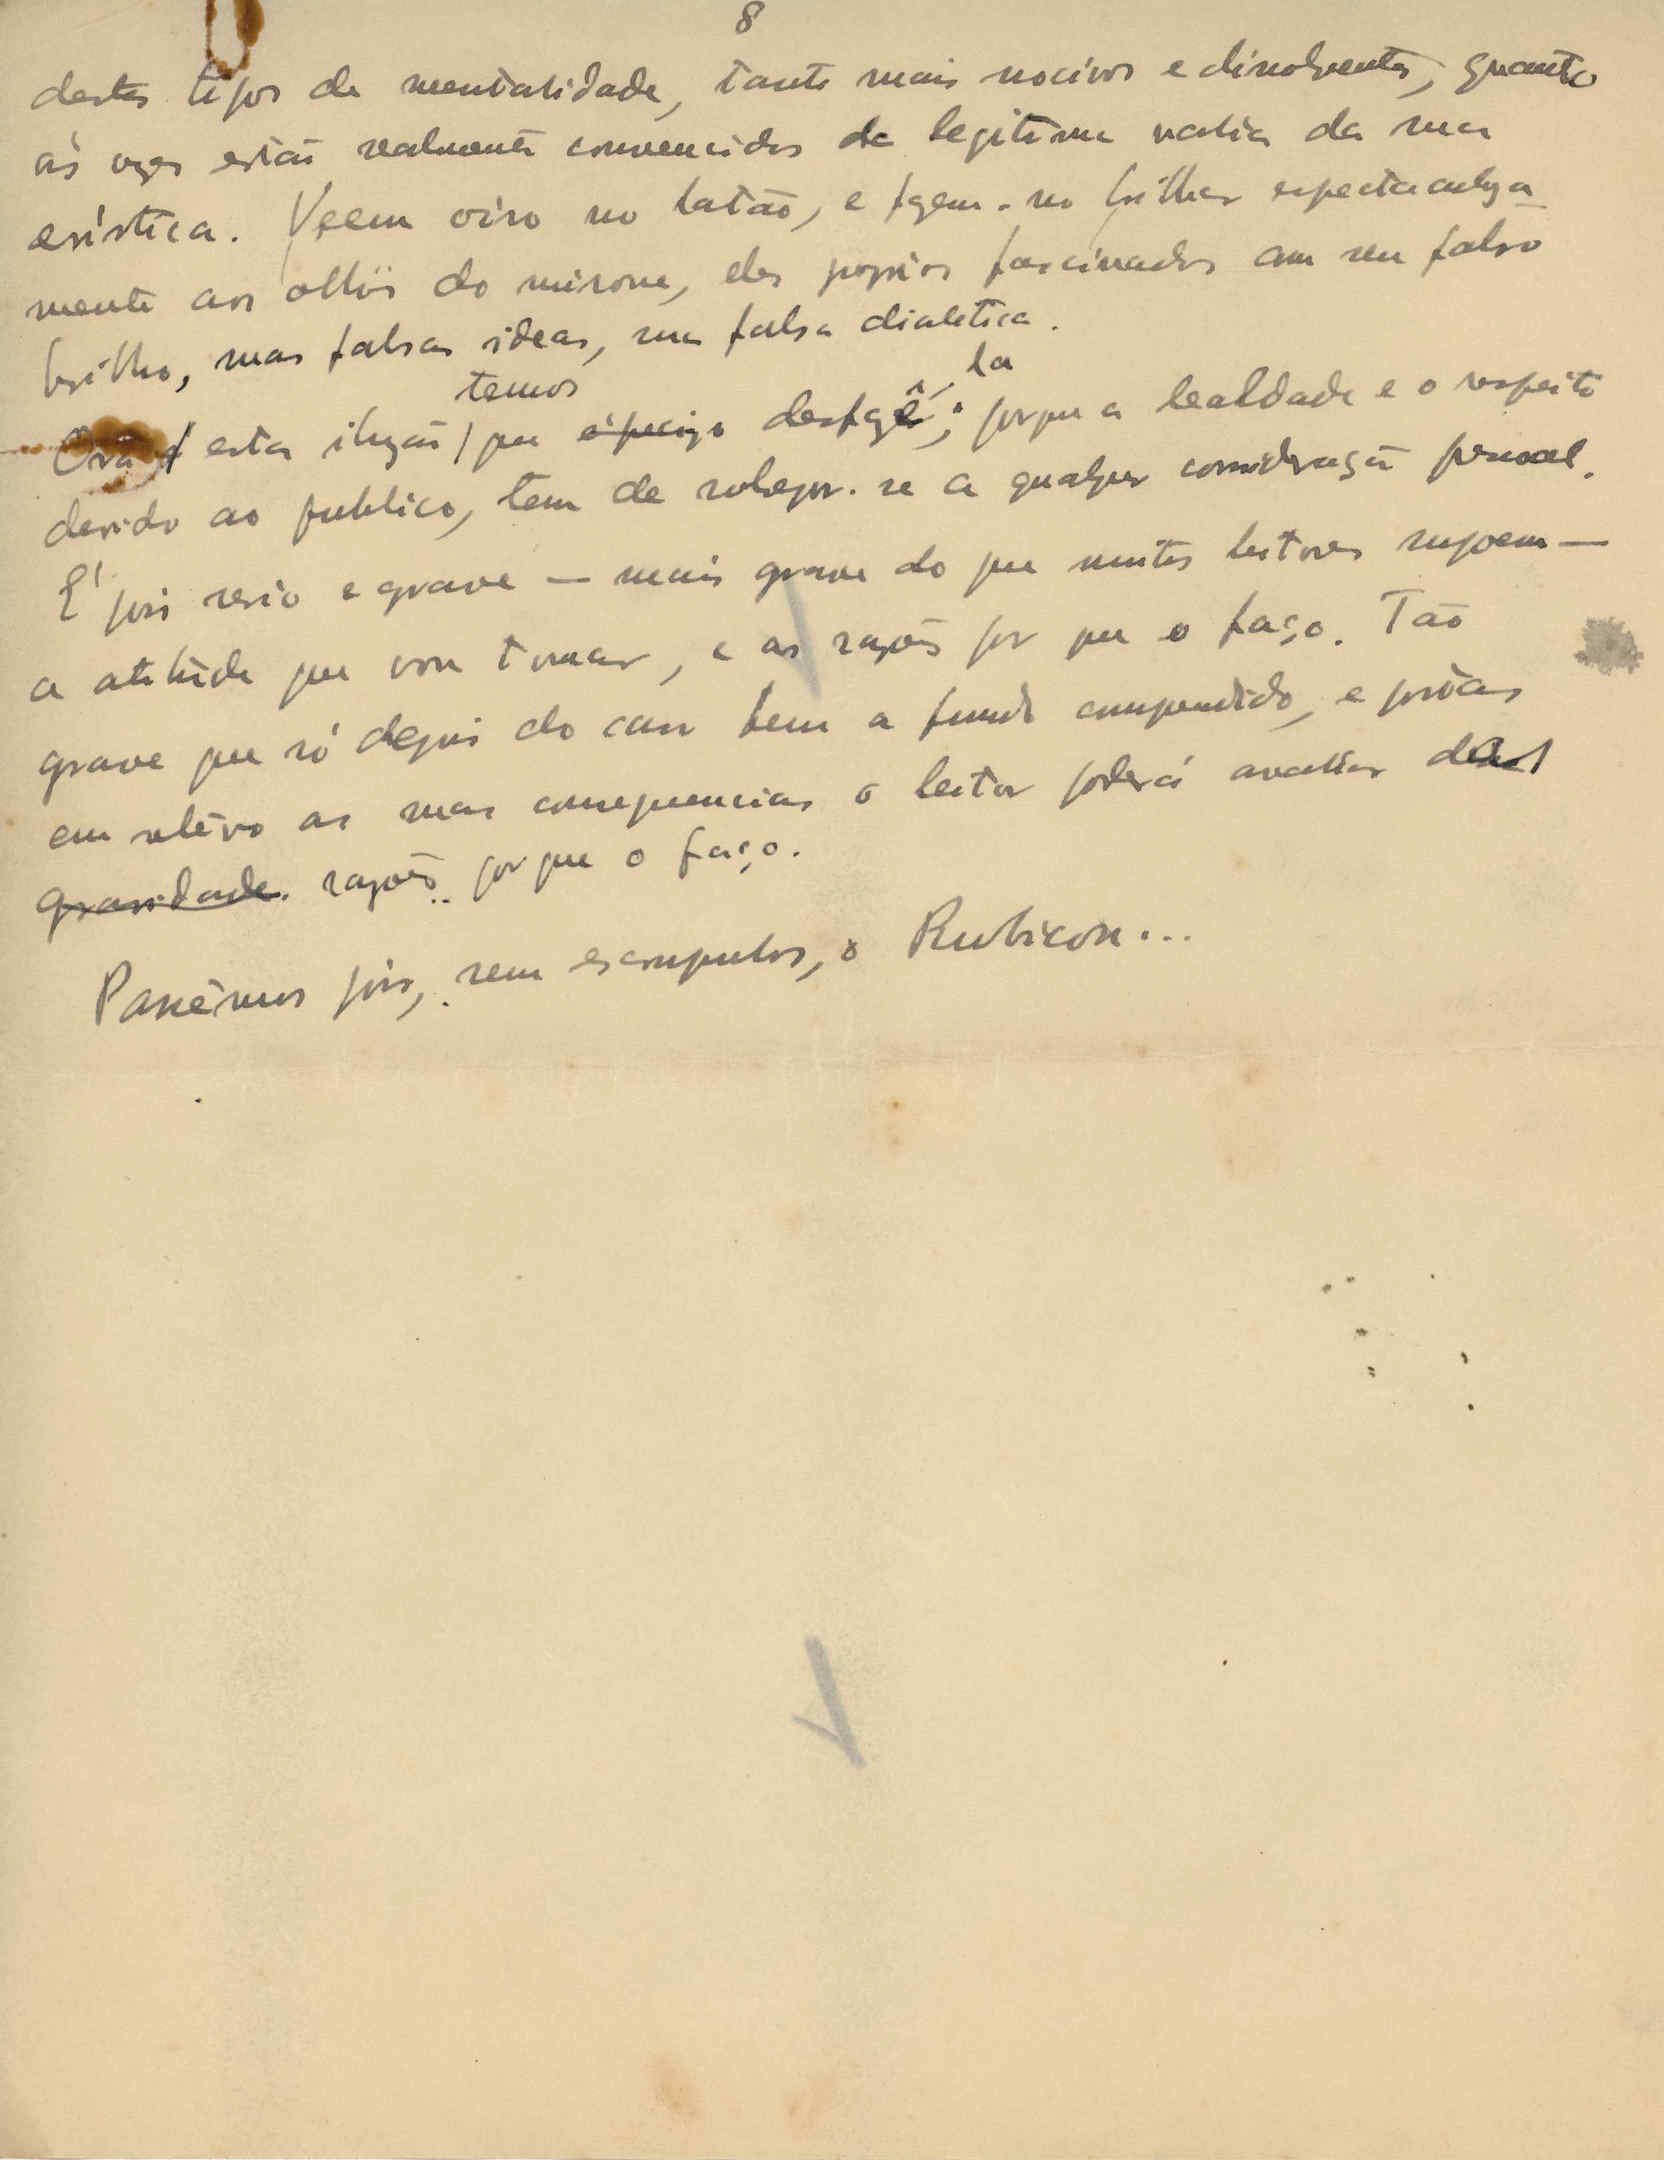 8
destes tipos de mentalidade, tanto mais nocivos e dissolventes, quanto
ás vezes estão realmente convencidos da legitima valia da sua
erística. Veem oiro no latão, e fazem-no brilhar espectaculosa
mente aos olhos do mirone, eles proprios fascinados com seu falso
brilho, suas falsas ideas, sua falsa dialetica.
temos la
Ora esta ilusão que é preciso desfazê; porque a lealdade e o respeito
devido ao publico, tem de sobrepor-se a qualquer consideração pessoal.
É pois serio e grave — mais grave do que muitos leitores supoem —
a atitude que vou tomar, e as razões por que o faço. Tão
grave que só depois do caso bem a fundo compendido, e postas
em relêvo as suas consequencias o leitor poderá avaliar das
gravidade. razões por que o faço.
Passêmos pois, sem escrupulos, o Rubicon...